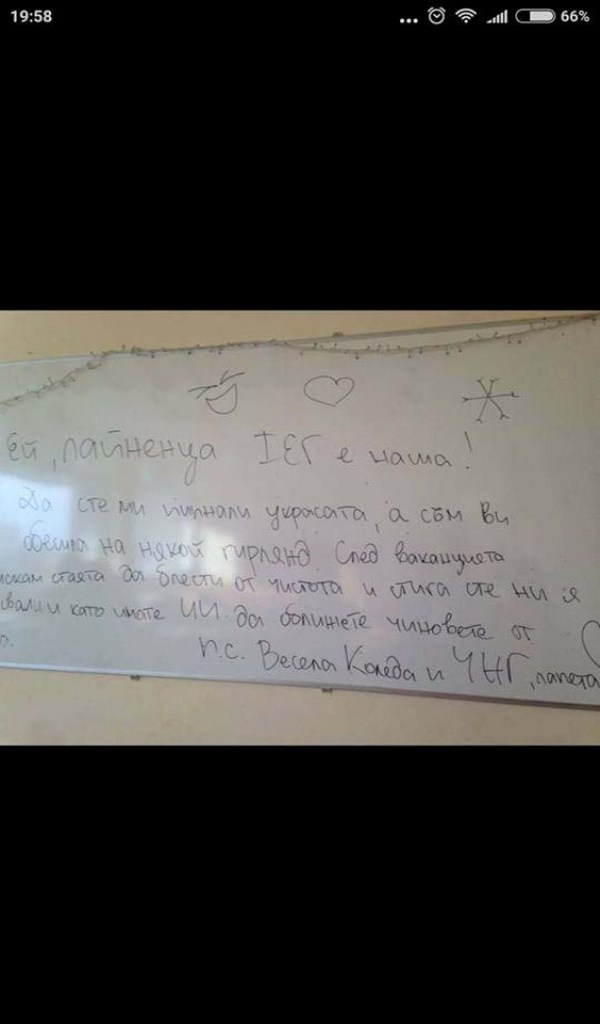 19:58
66%
Ей, лайненца IЕГ е наша!
Да сте ми пипнали украсата, а съм ви
обесила на някой гирлянд. След ваканцията
искам стаята да блести от чистота и стига сте ни я
като имате ЧИ. да ближете чиновете от
п.с. Весела Коледа и ЧНГ, лапета